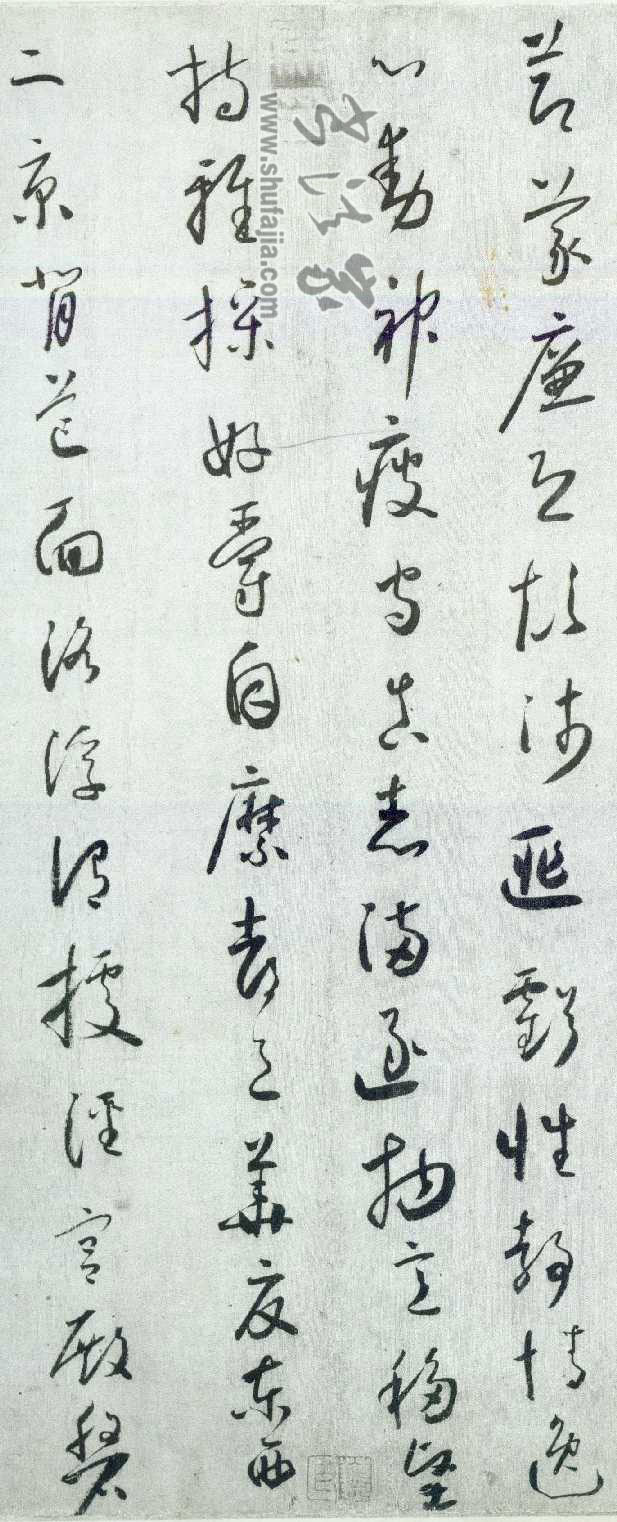 節義廉退顛沛匪虧性靜情逸
心動神疲守真志滿逐物意移堅
持雅操好爵自縻都邑華夏東西
二京背芒面洛浮渭據涇宮殿磐
书法家
www.shufajia.com